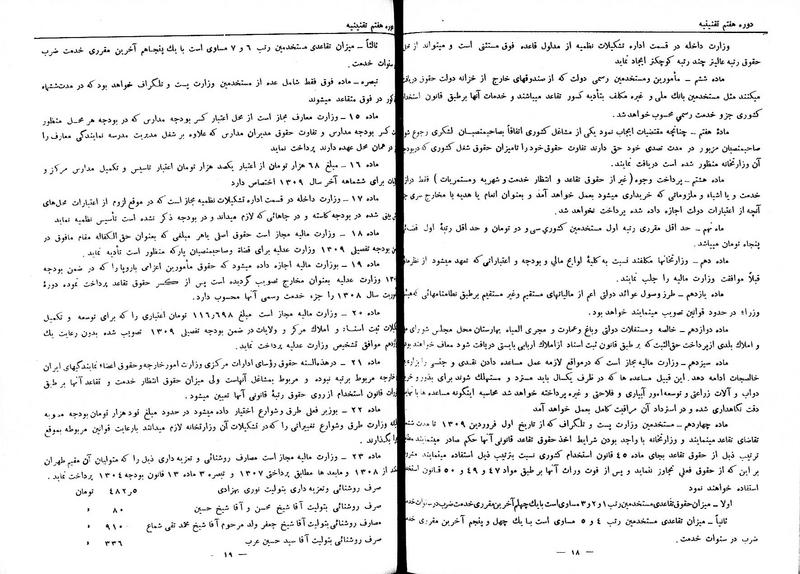 دوره هفتم تقنینیه
وزارت داخله در قسمت اداره تشکیلات نظمیه از مدلول قاعده فوق مستثنی است و میتواند از محل
حقوق رتبه عالیتر چند رتبه کوچکتر ایجاد نماید
ماده ششم ــ مأمورین ومستخدمین رسمی دولت که از صندوقهای خارج از خزانه دولت حقوق دریافت
میکنند مثل مستخدمین بانک ملی و غیره مکلف بتأدیه کسور تقاعد میباشند و خدمات آنها برطبق قانون استخدام
کشوری جزو خدمت رسمی محسوب خواهدشد.
مادهٔ هفتم ــ چنانچه مقتضیات ایجاب نمود یکی از مشاغل کشوری اتفاقاً بصاحبمنصبان لشکری رجوع شود
صاحبمنصبان مزبور در مدت تصدی خود حق دارند تفاوت حقوق خود را تامیزان حقوق شغل کشوری که دربودجه
آن وزارتخانه منظور شده است دریافت نمایند.
ماده هشتم ــ پرداخت وجوه (غیر از حقوق تقاعد و انتظار خدمت و شهریه ومستمریات) فقط درازاء
خدمت و یا اشیاء و ملزوماتی که خریداری میشود بعمل خواهد آمد و بعنوان انعام یا هدیه یا مخارج سری جز
آنچه از اعتبارات دولت اجازه داده شده پرداخت نخواهدشد.
ماده نهم ــ حد اقل مقرری رتبه اول مستخدمین کشوری سی و دو تومان و حد اقل رتبهٔ اول قضائی
پنجاه تومان میباشد.
ماده دهم ــ وزارتخانها مکلفند نسبت به کلیهٔ لوایح مالی و بودجه و اعتباراتی که تعهد میشود از نظرمالی
قبلا موافقت وزارت مالیه را جلب نمایند.
ماده یازدهم ــ طرز وصول عوائد دولتی اعم از مالیاتهای مستقیم وغیر مستقیم برطبق نظامنامهائی که هیئت
وزراء در حدود قوانین تصویب مینمایند خواهد بود.
ماده دوازدهم ــ خالصه ومستغلات دولتی وباغ وعمارت و مجری المیاه بهارستان محل مجلس شورای ملی
و املاک بلدی ازپرداخت حق‌الثبت که برطبق قانون ثبت اسناد ازاملاک اربابی بایستی دریافت شود معاف خواهند بود
ماده سیزدهم ــ وزارت مالیه مجاز است که درمواقع لازمه عمل مساعده دادن نقدی و جنسی را برای
خالصجات ادامه دهد. این قبیل مساعده ها که در ظرف یکسال باید مسترد و مستهلک شوند برای بذر و خرید
دواب و آلات زراعتی و توسعه امور آبیاری و فلاحتی و غیره پرداخته خواهد شد محاسبه اینگونه مساعده ها با نهایت
دقت نگاهداری شده و در استرداد آن مراقبت کامل بعمل خواهد آمد
ماده چهاردهم ــ مستخدمین وزارت پست و تلگراف که از تاریخ اول فروردین ۱۳۰۹ تا مدت ششماه
تقاضای تقاعد مینمایند و وزارتخانه با واجد بودن شرایط اخذ حقوق تقاعد قانونی آنها حکم صادر مینماید مطابق
ترتیب ذیل از حقوق تقاعد بجای ماده ۴۵ قانون استخدام کشوری نسبت بترتیب ذیل استفاده مینمایند مشروط
بر این که از حقوق فعلی تجاوز ننماید و پس از فوت وراث آنها بر طبق مواد ۴۷ و ۴۹ و ۵۰ قانون استخدام
استفاده خواهند نمود
اولا ــ میزان حقوق تقاعدی مستخدمین رتب ۱ و ۲ و ۳ مساوی است با یک چهلم آخرین مقرری خدمت ضرب در سنوات خدمت
ثانیاً ــ میزان تقاعدی مستخدمین رتب ۴ و ۵ مساوی است با یک چهل و پنجم آخرین مقرری
ضرب در سنوات خدمت .
ــ ۱۸ ــ
دوره هفتم تقنینیه
ثالثاً ــ میزان تقاعدی مستخدمین رتب ۶ و ۷ مساوی است با یک پنجاهم آخرین مقرری خدمت ضرب
سنوات خدمت.
تبصره ــ ماده فوق فقط شامل عده از مستخدمین وزارت پست و تلگراف خواهد بود که در مدت ششماه
در فوق متقاعد میشوند
ماده ۱۵ ــ وزارت معارف مجاز است از محل اعتبار کسر بودجه مدارس که در بودجه هر محل منظور
کسر بودجه مدارس و تفاوت حقوق مدیران مدارس که علاوه بر شغل مدیریت مدرسه نمایندگی معارف را
در همان محل عهده دارند پرداخت نماید
ماده ۱۶ ــ مبلغ ۶۸ هزار تومان از اعتبار یکصد هزار تومان اعتبار تاسیس و تکمیل مدارس مرکز و
برای ششماهه آخر سال ۱۳۰۹ اختصاص دارد
ماده ۱۷ ــ وزارت داخله در قسمت اداره تشکیلات نظمیه مجاز است که در موقع لزوم از اعتبارات محل‌های
شده در بودجه کاسته و در جاهائی که لازم میداند و در بودجه ذکر نشده است تأسیس نظمیه نماید
ماده ۱۸ ــ وزارت مالیه مجاز است حقوق اصلی یاهر مبلغی که بعنوان حق الکفاله مقام مافوق در
بودجه تفصیلی ۱۳۰۹ وزارت عدلیه برای قضاة وصاحبمنصبان پارکه منظور است تأدیه نماید.
ماده ۱۹ ــ بوزارت مالیه اجازه داده میشود که حقوق مأمورین اعزامی باروپا را که در ضمن بودجه
وزارت عدلیه بعنوان مخارج تصویب گردیده است پس از کسر حقوق تقاعد پرداخت نموده دورهٔ
سال ۱۳۰۸ را جزء خدمت رسمی آنها محسوب دارد.
ماده ۲۰ ــ وزارت مالیه مجاز است مبلغ ۱۱۶٫۶۹۸ تومان اعتباری را که برای توسعه و تکمیل
ثبت اسناد و املاک مرکز و ولایات در ضمن بودجه تفصیلی ۱۳۰۹ تصویب شده بدون رعایت یک
دهم موافق تشخیص وزارت عدلیه پرداخت نماید.
ماده ۲۱ ــ درهذه‌السنه حقوق رؤسای ادارات مرکزی وزارت امورخارجه وحقوق اعضاء نمایندگیهای ایران
خارجه مربوط برتبه نبوده و مربوط بمشاغل آنهاست ولی میزان حقوق انتظار خدمت و تقاعد آنها بر طبق
قانون استخدام از روی حقوق رتبهٔ قانونی آنها تعیین میشود .
ماده ۲۲ ــ بوزیر فعل طرق و شوارع اختیار داده میشود در حدود مبلغ نود هزار تومان بودجه مصوبه
وزارت طرق و شوارع تغییراتی را که در تشکیلات آن وزارتخانه لازم میدانند بارعایت قوانین مربوطه بموقع
بگذارند.
ماده ۲۳ ــ وزارت مالیه مجاز است مصارف روشنائی و تعزیه داری ذیل را که متولیان آن مقیم طهران
از ۱۳۰۸ و مابعد ها مطابق پرداختی ۱۳۰۷ و تبصره ۳ ماده ۱۳ قانون بودجه ۱۳۰۴ پرداخت نماید.
صرف روشنائی و تعزیه داری بتولیت نوری بهزادی ۴۸۲٫۵ تومان
صرف روشنائی بتولیت آقا شیخ محسن و آقا شیخ حسین ۸۰ »
مصارف روشنائی بتولیت آقا شیخ جعفر ولد مرحوم آقا شیخ محمد تقی شماع ۹۱۰ »
صرف روشنائی بتولیت آقا سید حسین عرب ۳۳۶ »
ــ ۱۹ ــ